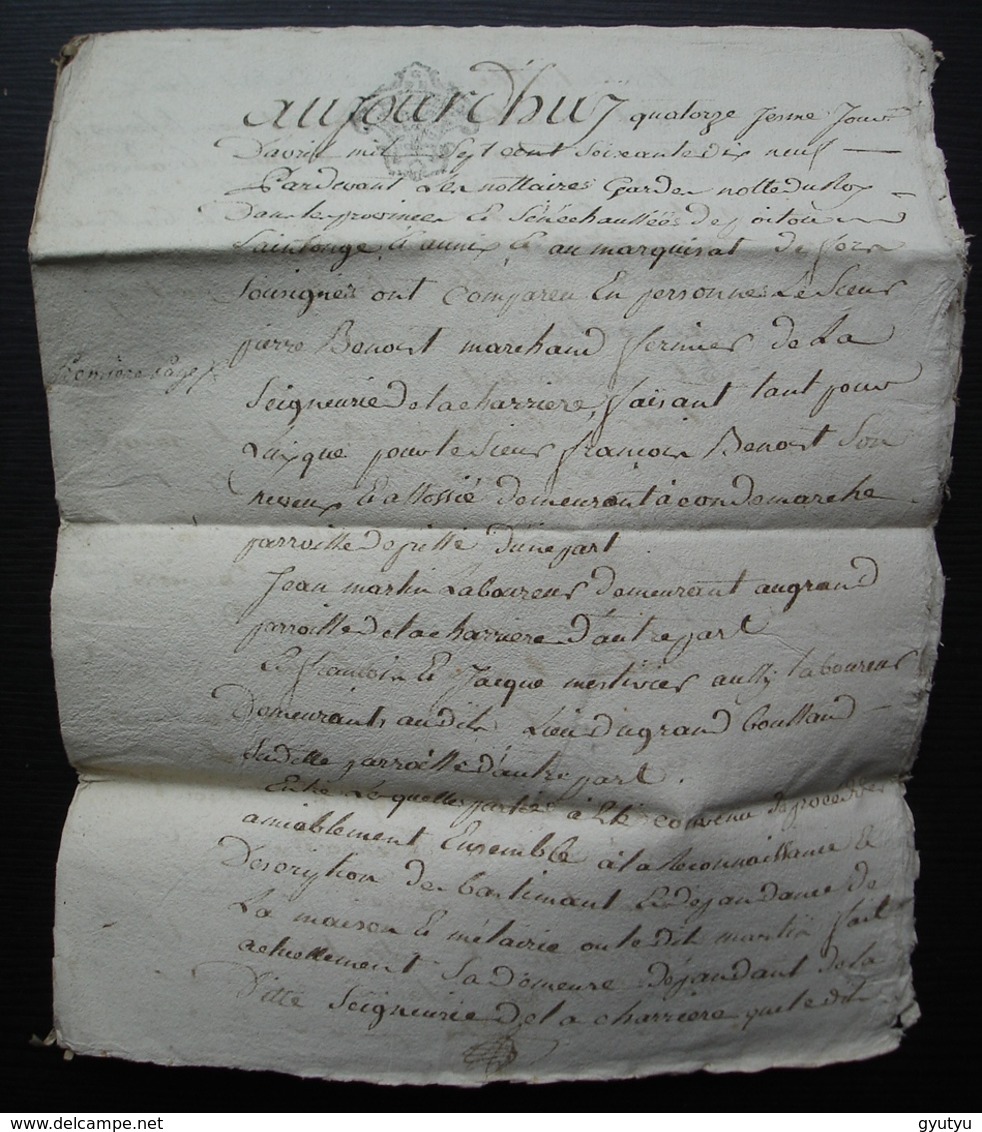 aujourd'huy quatorze jesme Jour
D'avril mil sept cent soixante dix neuf
Pardevant Les nottaires Garde notte du Roy
Dans les provinces & Sénéchaussées de poitou
Saintonge & aunix & au marquisat de
Sousignés ont Compareu En personnes Le Sieur
pierre Benoist marchand fermier de La
Seigneurie de La charriere, faisant tant pour
Luy que pour le Sieur françois Benoist Son
neveux & assossié demeurant à condemarche
parroisse de d'une part
Jean martin Laboureur demeurant au grand
parroisse de La charriere D'autre part
Et françois & Jacque mestivier aussy Laboureur
Demeurants audit Lieu du grand
Suditte parroisse d'autre part.
Entre Lesquelles parties à Eté convenu de proceder
amiablement Ensemble à La Reconnaissance &
Description des bastimant & dépandance de
La maison & métairie ou le dit martin fait
actuellement Sa Demeure dépandant de La
Ditte Seigneurie de La charriere que le dit
premiere page
gyutyu